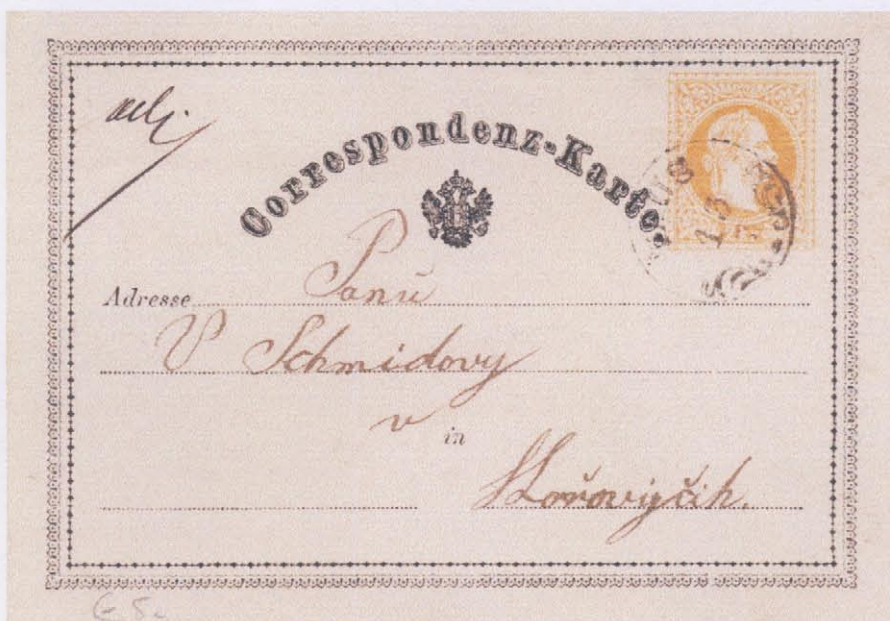 Correspondenz-Karte.
Adresse Panu
V Schmidovy
v in
Hořovicích.